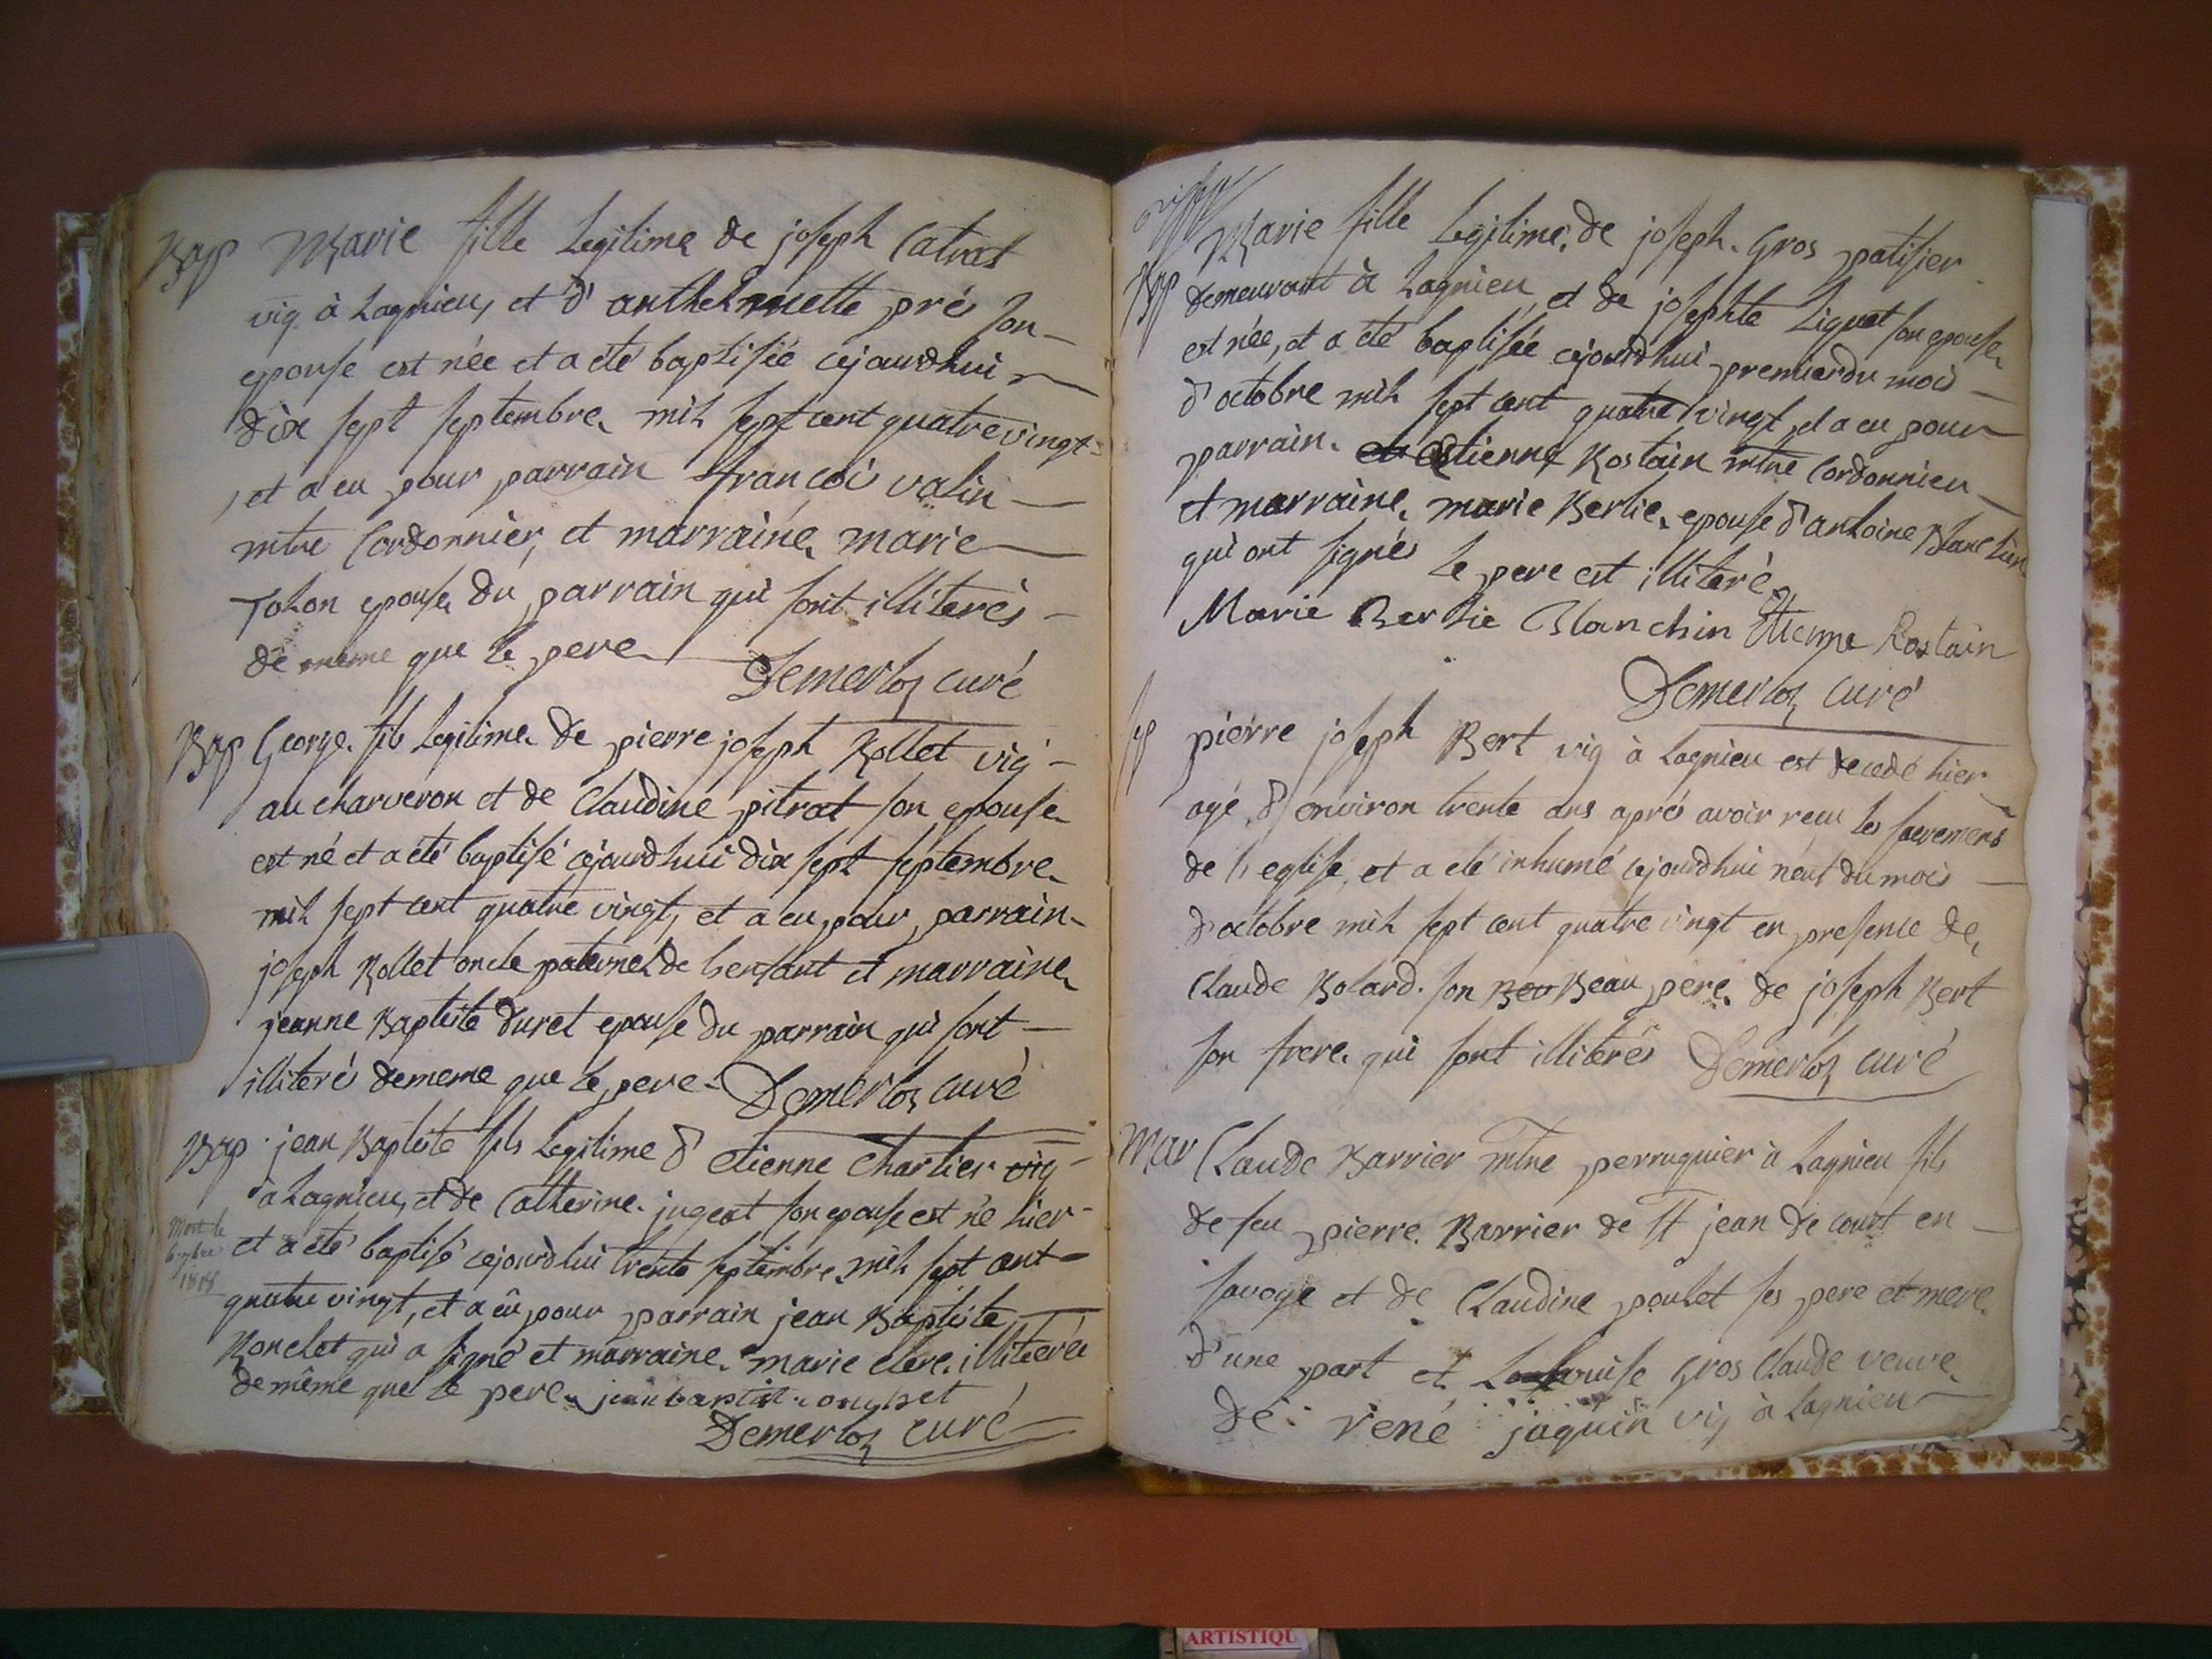 Bap Marie fille legitime de joseph Catrat
vig à Lagnieu, et d'anthelmette pré son
epouse est née et a été baptisée cejourdhui
dix sept septembre mil sept cent quatre vingt
et a eu pour parrain françois valin
mtre Cordonnier, et marraine marie
Tolon epouse du parrain qui sont illiterés
de meme que le pere
Demerloz curé
Bap George fils legitime de pierre joseph Rollet vig
au charveron et de Claudine pitrat son epouse
est né et a été baptisé cejourdhui dix sept septembre
mil sept cent quatre vingt, et a eu pour parrain
joseph Rollet oncle paternel de l'enfant et marraine
jeanne Baptiste duret epouse du parrain qui sont
illiteré dememe que le pere Demerloz curé
Bap jean Baptiste fils legitime d'etienne Chartier vig
à Lagnieu, et de Catherine jugeat son epouse est né hier
et a été baptisé cejourdhui trente septembre mil sept cent
Mort le
1818
quatre vingt, et a eû pour parrain jean Baptiste
Ronclet qui a signé et marraine marie clere illiterée
de même que le pere jean baptist
Demerloz curé
Marie fille legitime de joseph Gros patisier
Bap demeurant à Lagnieu, et de josephte Liquet son epouse
est née, et a été baptisée cejourdhui premier du mois
d'octobre mil sept cent quatre vingt et a eu pour
parrain et Etienne Rostain mtre Cordonnieu
et marraine marie Berlie epouse d'antoine Blanchin
qui ont signés le pere est illiteré
Marie Berlie Blanchin Etienne Rostain
Demerloz curé
sep pierre joseph Bert vig à Lagnieu est decedé hier
agé d'environ trente ans aprés avoir recu les sacremens
de l'eglise, et a eté inhumé cejourdhui neuf du mois
d'octobre mil sept cent quatre vingt en presence de
Claude Bolard son Beu Beau pere de joseph Bert
son frere qui sont illiterés Demerloz curé
Mar Claude Barrier mtre perruquier à Lagnieu fils
de feu pierre Barrier de St jean de court en
savoye et de Claudine poulet ses pere et mere
d'une part et Louise Gros Claude veuve
de rené jaquin vig à Lagnieu
ARTISTIQU